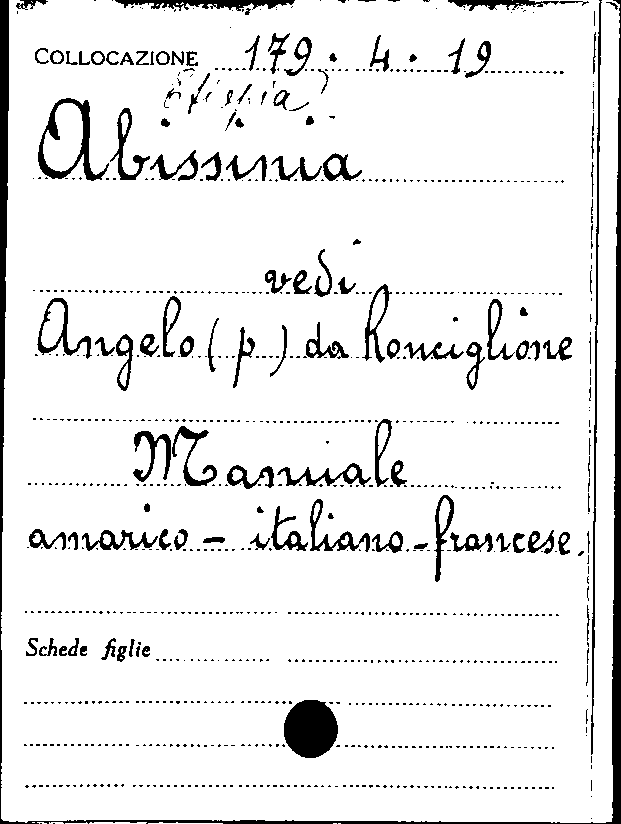 COLLOCAZIONE 179 . 4 . 19
Etiopia
Abissinia
vedi
Angelo (p) da Ronciglione
Manuale
amarico - italiano - francese.
Schede figlie